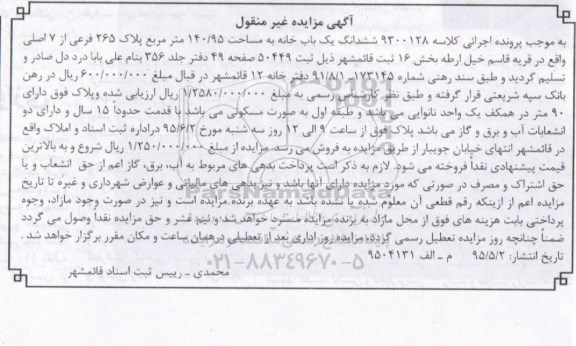 آگهی مزایده غیر منقول
به موجب پرونده اجرائی کلاسه ۹۳۰۰۱۲۸ ششدانگ یک باب خانه به مساحت ۱۴۰/۹۵ متر مربع پلاک ۲۶۵ فرعی از ۷ اصلی
واقع در قریه قاسم خیل ارطه بخش ۱۶ ثبت قائمشهر ذیل ثبت ۵۰۴۴۹ صفحه ۴۹ دفتر جلد ۳۵۶ بنام علی بابا درد دل صادر و
تسلیم گردید و طبق سند رهنی شماره ۱۷۳۱۴۵ـ ۹۱/۸/۱ دفتر خانه ۱۲ قائمشهر در قبال مبلغ ۶۰۰/۰۰۰/۰۰۰ ریال در رهن
بانک سپه شریعتی قرار گرفته و طبق نظر کارشناس رسمی به مبلغ ۱/۲۵۸۰/۰۰۰/۰۰۰ ریال ارزیابی شده وپلاک فوق دارای
۹۰ متر در همکف یک واحد نانوایی می باشد و طبقه اول به صورت مسکونی می باشد با قدمت حدوداً ۱۵ سال و دارای دو
انشعابات آب و برق و گاز می باشد پلاک فوق از ساعت ۹ الی ۱۲ روز سه شنبه مورخ ۹۵/۶/۲ دراداره ثبت اسناد و املاک واقع
در قائمشهر انتهای خیابان جویبار از طریق مزایده به فروش می رسد. مزایده از مبلغ ۱/۲۵۰/۰۰۰/۰۰۰ ریال شروع و به بالاترین
قیمت پیشنهادی نقداً فروخته می شود. لازم به ذکر است پرداخت بدهی های مربوط به آب، برق، گاز اعم از حق انشعاب و یا
حق اشتراک و مصرف در صورتی که مورد مزایده دارای آنها باشد و نیز بدهی های مالیاتی و عوارض شهرداری و غیره تا تاریخ
مزایده اعم از اینکه رقم قطعی آن معلوم شده یا نشده باشد به عهده برنده مزایده است و نیز در صورت وجود مازاد، وجوه
پرداختی بابت هزینه های فوق از محل مازاد به برنده مزایده مسترد خواهد شد و نیم عشر و حق مزایده نقداً وصول می گردد
ضمناً چنانچه روز مزایده تعطیل رسمی گردد، مزایده روز اداری بعد از تعطیلی درهمان ساعت و مکان مقرر برگزار خواهد شد.
تاریخ انتشار: ۹۵/۵/۲ م ـ الف ۹۵۰۴۱۳۱
۰۲۱-۸۸۳۴۹۶۷۰-۵
محمدی ـ رییس ثبت اسناد قائمشهر